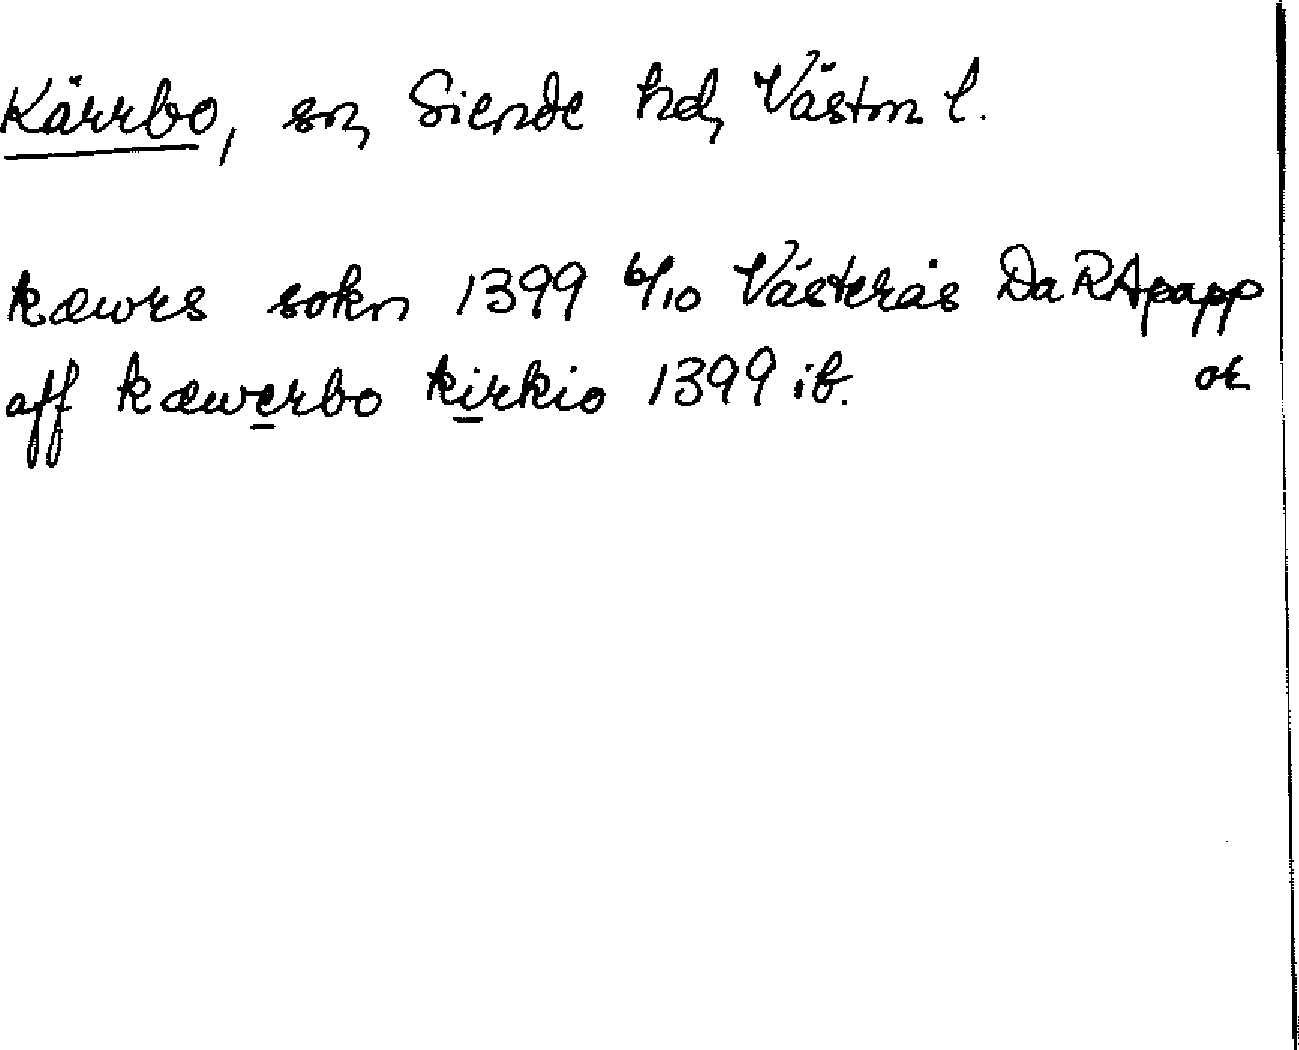 Kärrbo, sn, Siende hd, Västm l.
kæwrs sokn 1399 6/10 Västerås Da RApapp
aff kæwerbo kirkio 1399 ib. or